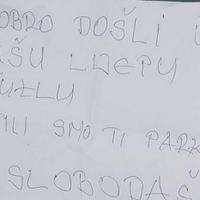 OBRO DOŠLI U
AŠU LIJEPU
UZLU
ILI SMO TI PARK
SLOBODAŠ